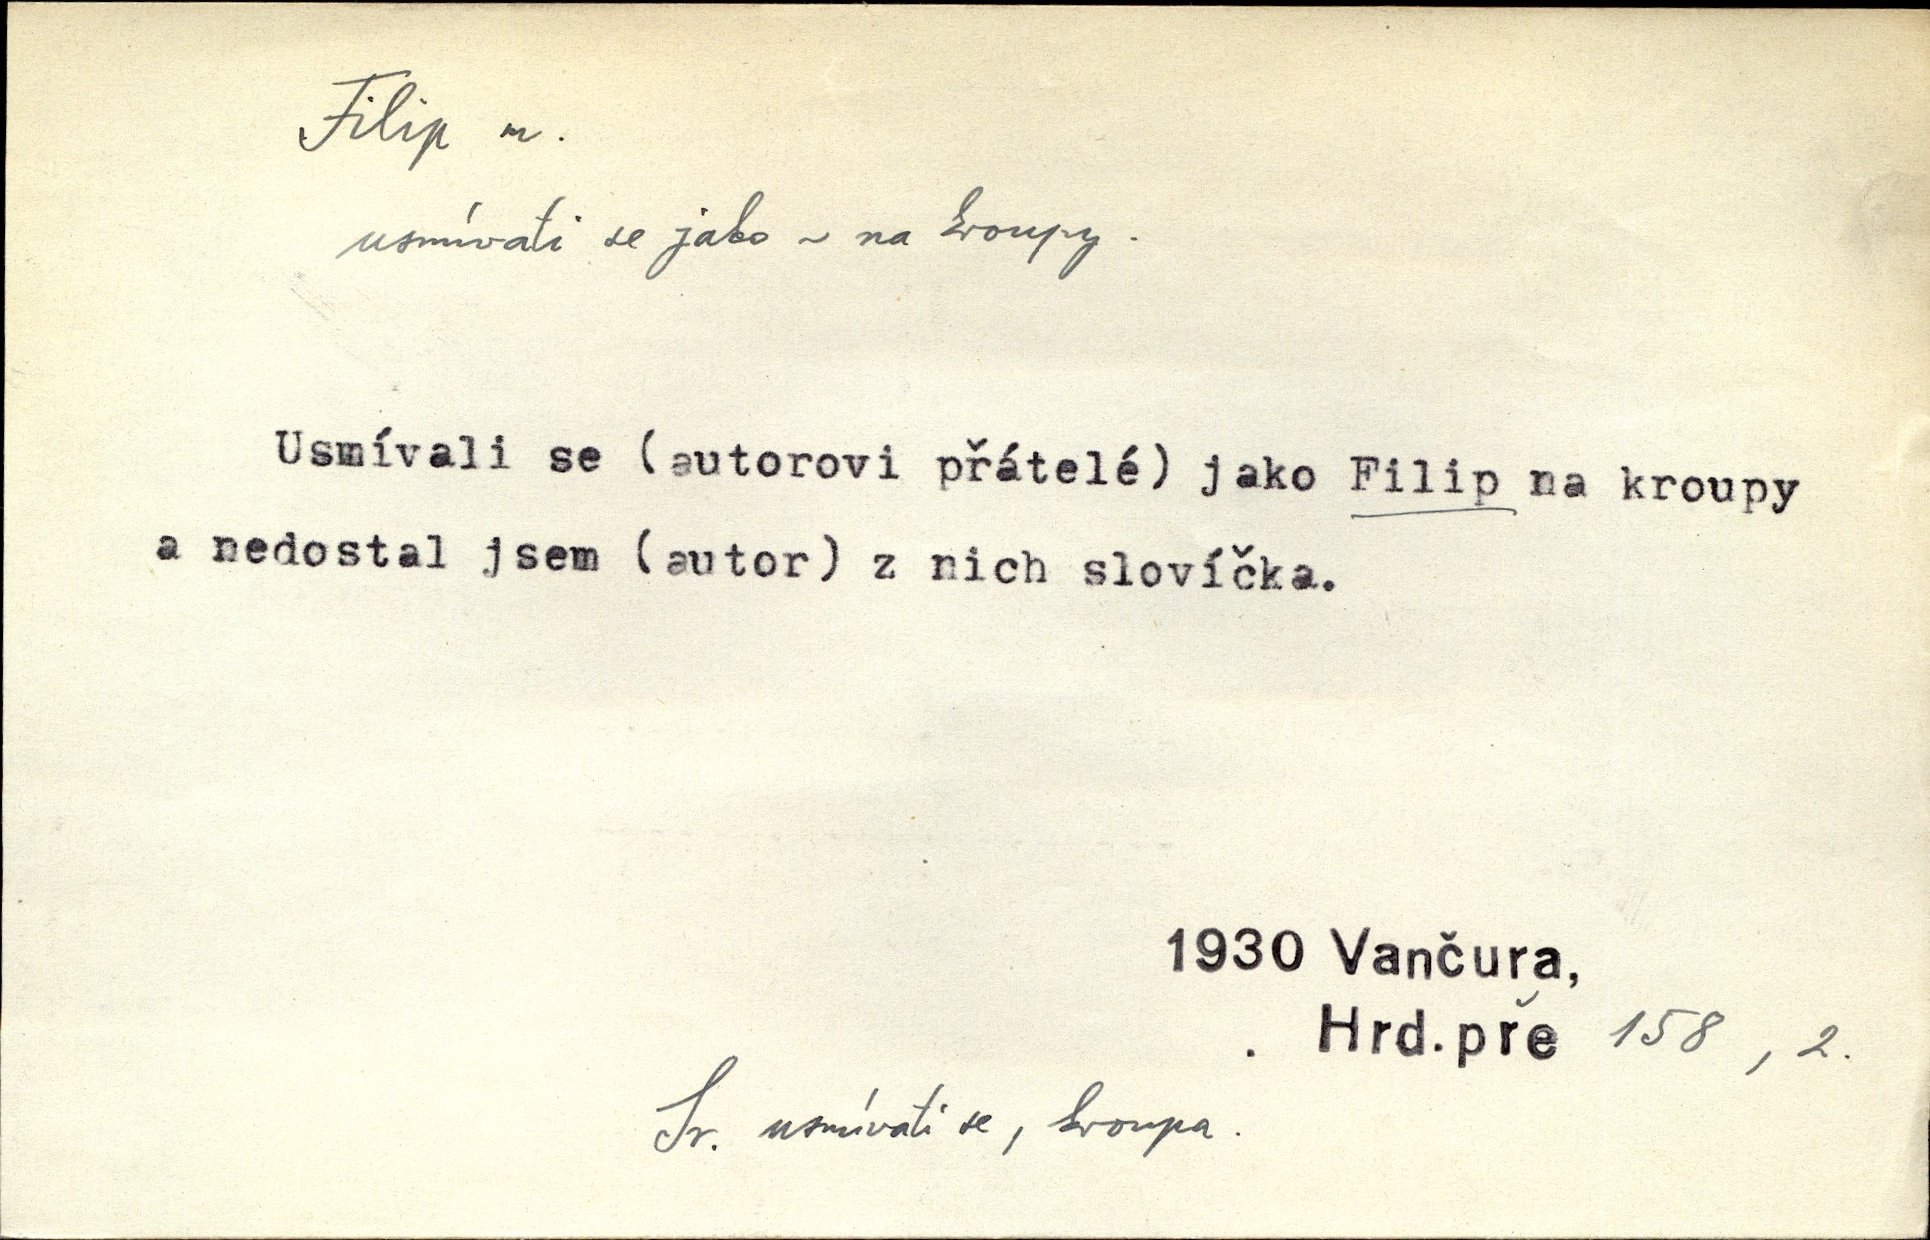 Filip m.
usmívati se jako ~ na kroupy.
Usmívali se (autorovi přátelé) jako Filip na kroupy
a nedostal jsem (autor) z nich slovíčka.
1930 Vančura,
Hrd.pře 158, 2.
Sr. usmívati se, kroupa.